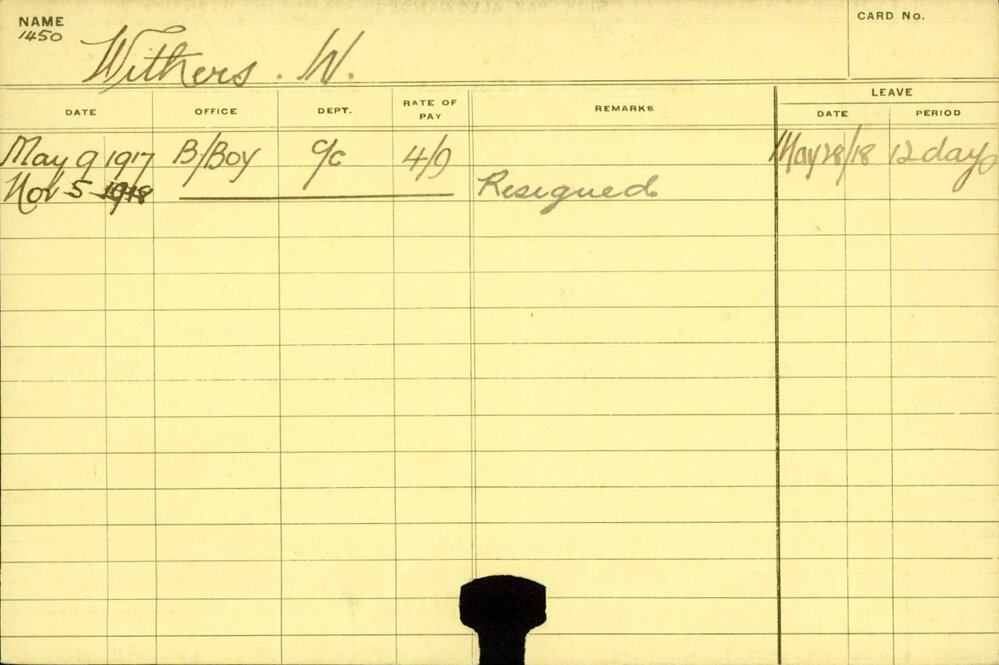 NAME
1450
Withers. W.
CARD No.
DATE OFFICE DEPT. RATE OF PAY REMARKS LEAVE
DATE PERIOD
May 9 1917 B/Boy C/C 4/9 May 28/18 12 days
Nov 5 1918 Resigned